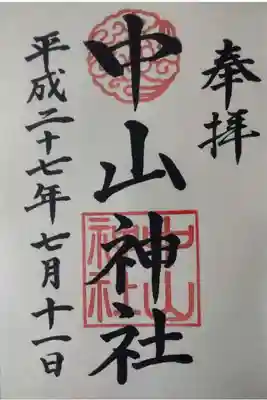 奉拝
中山神社
平成二十七年七月十一日
中山
神社